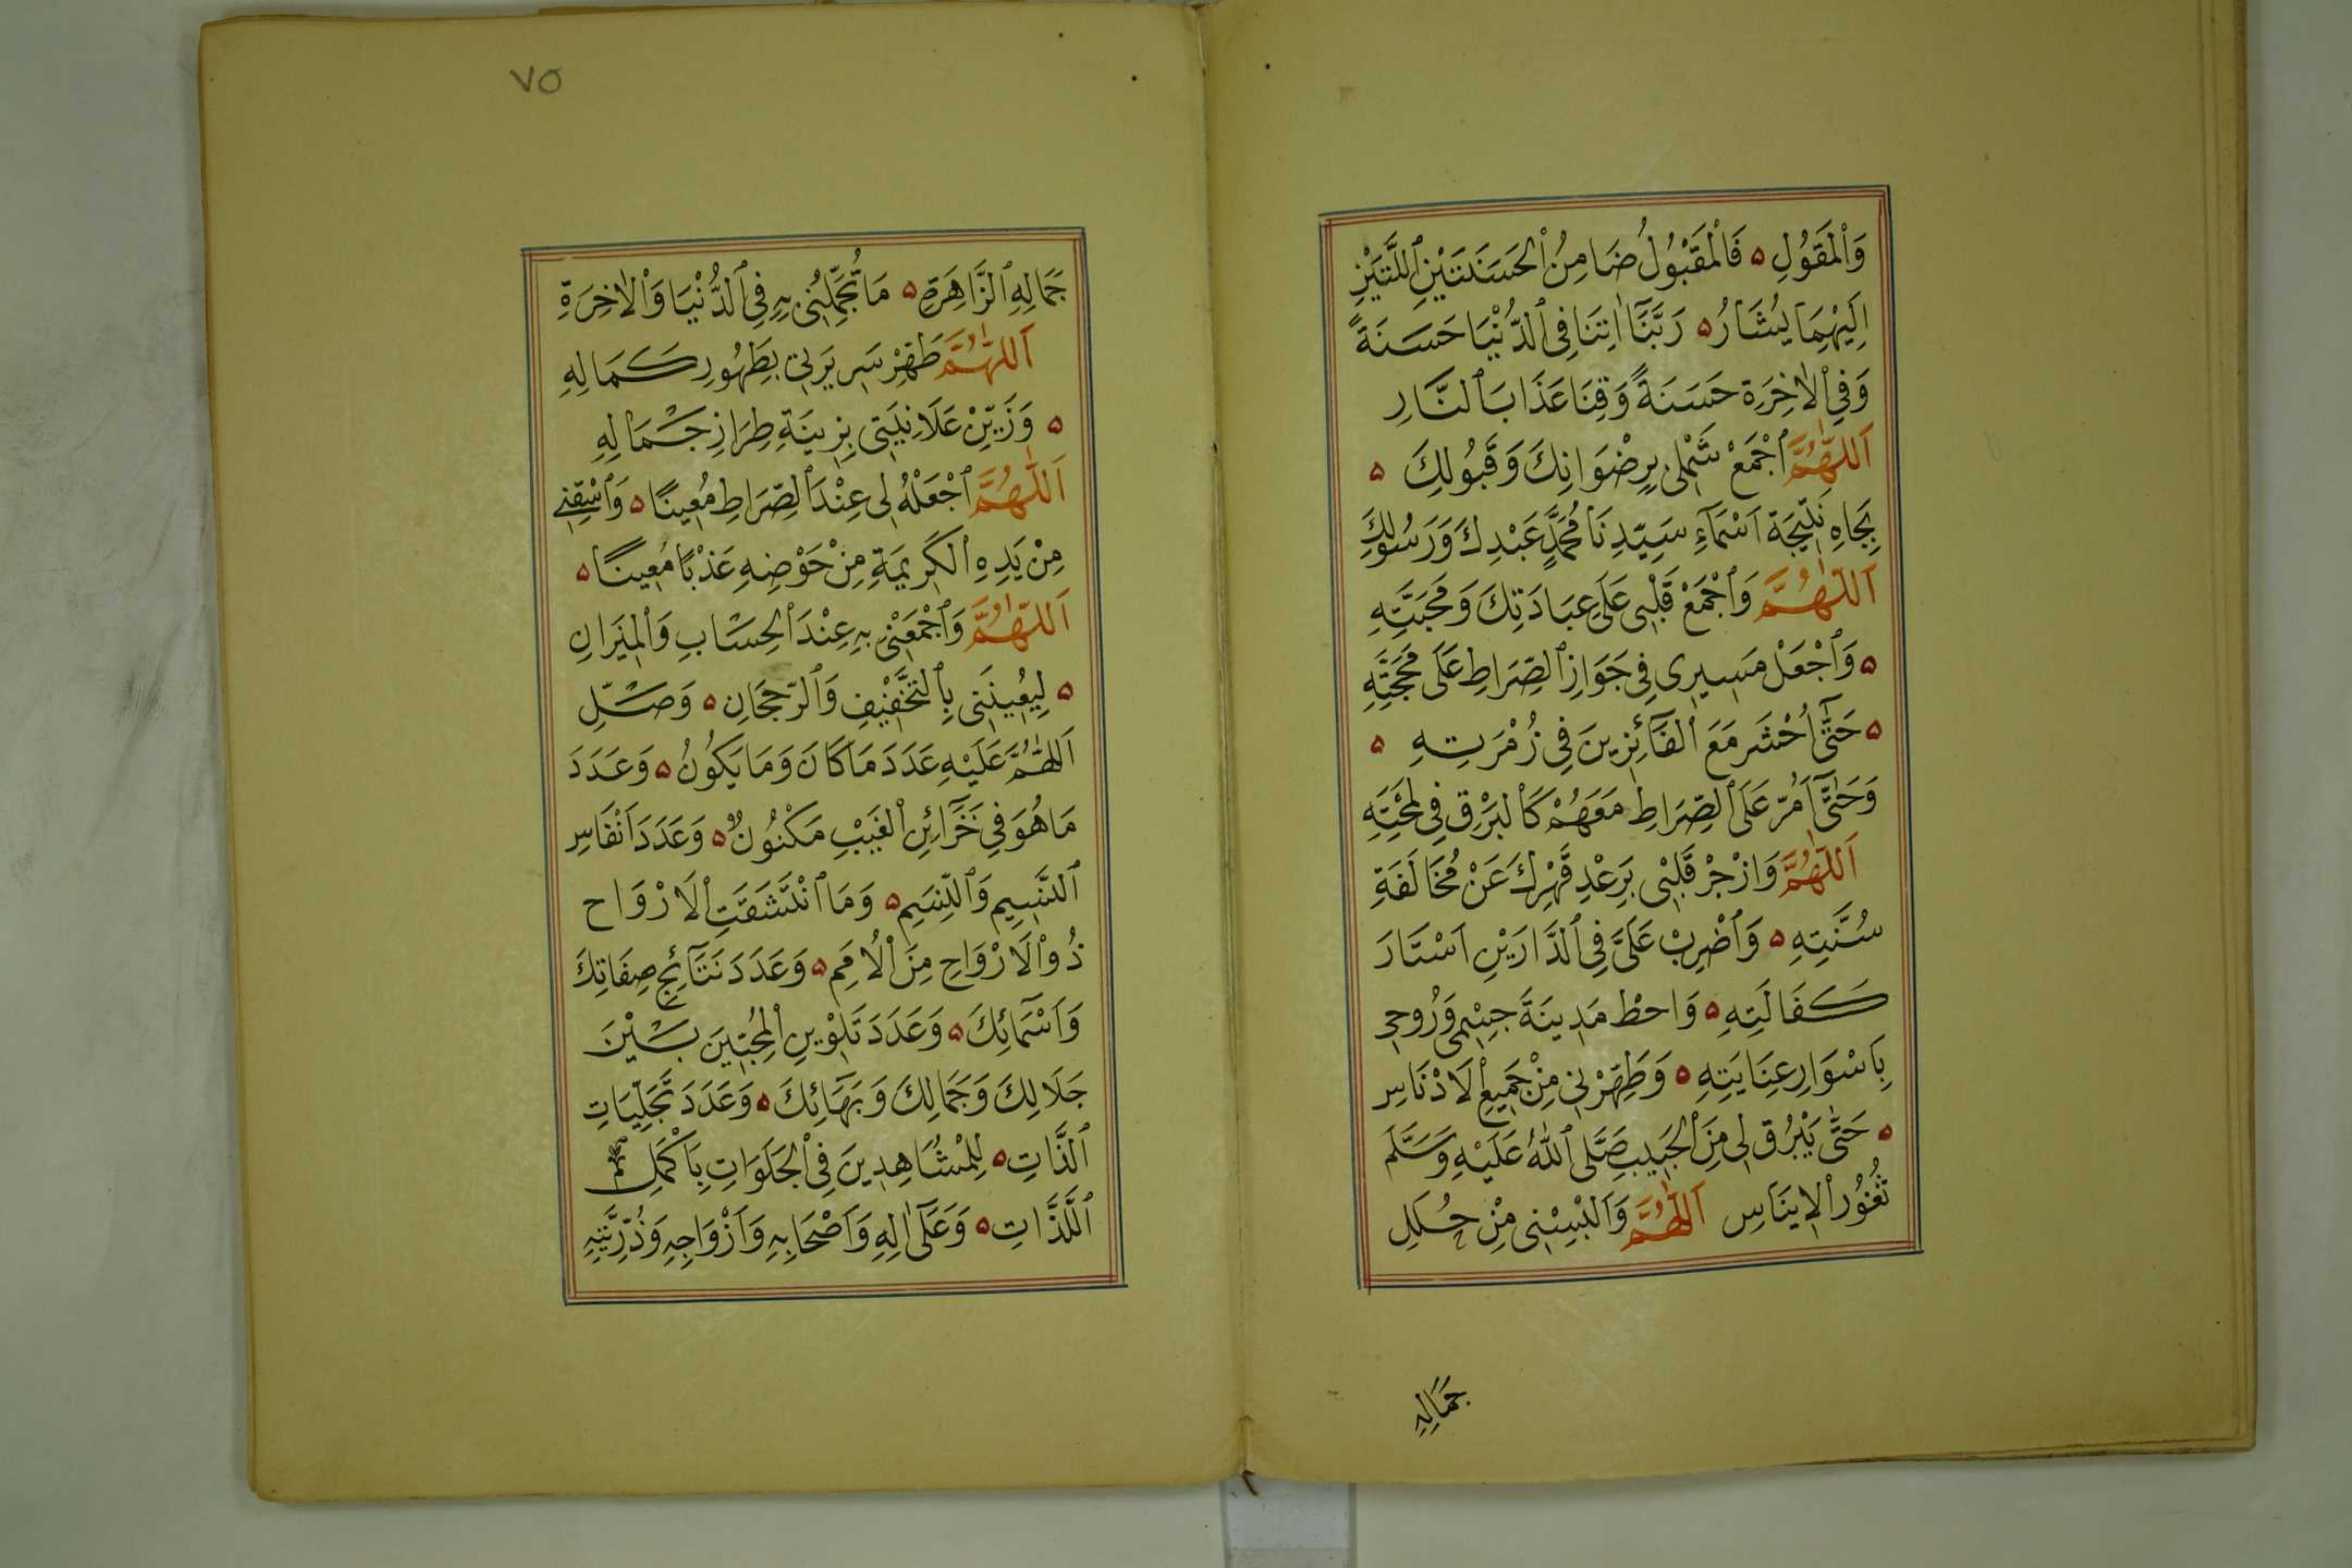 وَالْمَقُولِ ۵ فَالْمَقْبُولُ ضَامِنُ الْحَسَنَتَيْنِ اللَّتَيْنِ
اِلَيْهِمَا يُشَارُ ۵ رَبَّنَٓا اٰتِنَا فِى الدُّنْيَا حَسَنَةً
وَفِى الْاٰخِرَةِ حَسَنَةً وَقِنَا عَذَابَ النَّارِ
اَللّٰهُمَّ اجْمَعْ شَمْلِى بِرِضْوَانِكَ وَقَبُولِكَ ۵
بِجَاهِ نَتِيجَةِ اَسْمَآءِ سَيِّدِنَا مُحَمَّدٍ عَبْدِكَ وَرَسُولِكَ
اَللّٰهُمَّ وَاجْمَعْ قَلْبِى عَلَى عِبَادَتِكَ وَمَحَبَّتِهِ
۵ وَاجْعَلْ مَسِيرِى فِى جَوَازِ الصِّرَاطِ عَلَى مَحَجَّتِهِ
۵ حَتَّٓى اُحْشَر مَعَ الْفَآئِزِينَ فِى زُمْرَتِهِ ۵
وَحَتَّٓى اَمُرّ عَلَى الصِّرَاطِ مَعَهُمْ كَالْبَرْقِ فِى لَمْحَتِهِ
اَللّٰهُمَّ وَازْجُرْ قَلْبِى بِرَعْدِ قَهْرِكَ عَنْ مُخَالَفَةِ
سُنَّتِهِ ۵ وَاضْرِبْ عَلَىَّ فِى الدَّارَيْنِ اَسْتَارَ
كَفَالَتِهِ ۵ وَاحطْ مَدِينَةَ جِسْمِى وَرُوحِى
بِاَسْوَارِ عِنَايَتِهِ ۵ وَطَهِّرْنِى مِنْ جَمِيعِ الْاَدْنَاسِ
۵ حَتَّى يَبْرُق لِى مِنَ الْحَبِيبِ صَلَّى اللّٰهُ عَلَيْهِ وَسَلَّمَ
ثُغُورُ الْاِينَاسِ اَللّٰهُمَّ وَاَلْبِسْنِى مِنْ حُلَلِ
جَمَالِهِ
٧٥
جَمَالِهِ الزَّاهِرَةِ ۵ مَا تُجَمِّلُنِى بِهِ فِى الدُّنْيَا وَالْاٰخِرَةِ
اَللّٰهُمَّ طَهِّرْ سَرِيرَتِى بِطَهُورِ كَمَالِهِ
۵ وَزَيِّنْ عَلَانِيَتِى بِزِينَةِ طِرَازِ جَمَالِهِ
اَللّٰهُمَّ اجْعَلْهُ لِى عِنْدَ الصِّرَاطِ مُعِينًا ۵ وَاسْقِنِى
مِنْ يَدِهِ الْكَرِيمَةِ مِنْ حَوْضِهِ عَذْبًا مُعِينًا ۵
اَللّٰهُمَّ وَاجْمَعْنِى بِهِ عِنْدَ الْحِسَابِ وَالْمِيزَانِ
۵ لِيُعِينَنِى بِالتَّخْفِيفِ وَالرّجحَانِ ۵ وَصَلِّ
اَللّٰهُمَّ عَلَيْهِ عَدَدَ مَا كَانَ وَمَا يَكُونُ ۵ وَعَدَدَ
مَا هُوَ فِى خَزَآئِنِ الْغَيْبِ مَكْنُونٌ ۵ وَعَدَدَ اَنْفَاسِ
النَّسِيمِ وَالنِّسَيمِ ۵ وَمَا انْتَشَقَتِ الْاَرْوَاح
ذُو الْاَرْوَاحِ مِنَ الْاُمَمِ ۵ وَعَدَدَ نَتَآئِجِ صِفَاتِكَ
وَاَسْمَآئِكَ ۵ وَعَدَدَ تَلْوِينِ الْمُحِبِّينَ بَيْنَ
جَلَالِكَ وَجَمَالِكَ وَبَهَآئِكَ ۵ وَعَدَدَ تَجَلِّيَاتِ
الذَّاتِ ۵ لِلْمُشَاهِدِينَ فِى الْجَلَوَاتِ بِاَكْمَلِ
اللَّذَّاتِ ۵ وَعَلَٓى اٰلِهِ وَاَصْحَابِهِ وَاَزْوَاجِهِ وَذُرِّيَّتِهِ